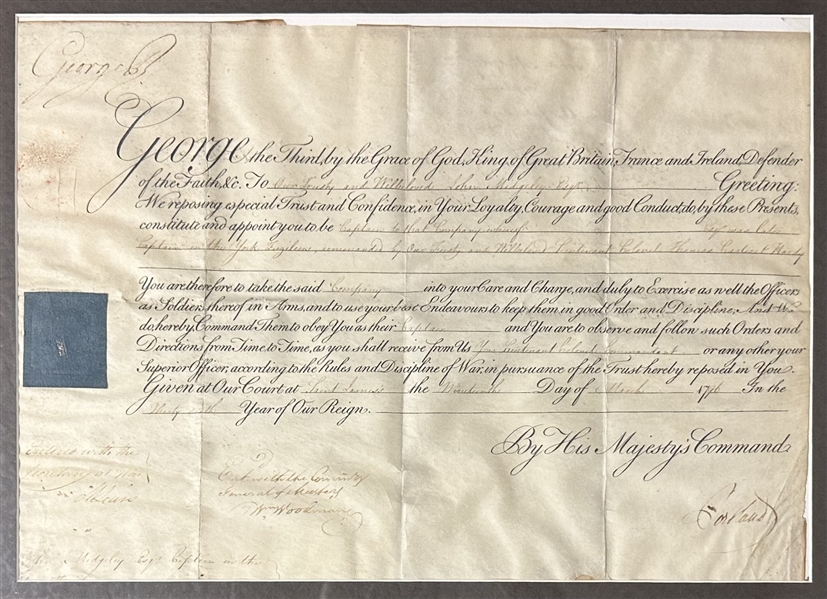 George R
George the Third, by the Grace of God, King, of Great Britain, France and Ireland, Defender
of the Faith, &c. To Our Trusty and Wellbeloved John Midgley Esqr. Greeting:
We reposing especial Trust and Confidence, in Your Loyalty, Courage and good Conduct, do, by these Presents,
constitute and appoint you to be Captain to that Company whereof
Captain in the York Fuzileers, commanded by Our Trusty and Wellbeloved Lieutenant Colonel Thomas
You are therefore to take the said Company into your Care and Charge, and duly to Exercise as well the Officers
as Soldiers thereof in Arms, and to use your best Endeavours to keep them in good Order and Discipline; And We
do, hereby, Command Them to obey You as their Captain and You are to observe and follow such Orders and
Directions from Time to Time, as you shall receive from Us Your Lieutenant Colonel Commandant or any other your
Superior Officer, according to the Rules and Discipline of War, in pursuance of the Trust hereby reposed in You.
Given at Our Court at Saint James's the Day of March 1796 In the
Thirty Sixth Year of Our Reign.
By His Majesty's Command.
Portland
Entered with the
Secretary at War
Entd. with the Commissary
General of Musters
Wm Woodman
Midgley Esqr. Captain in the